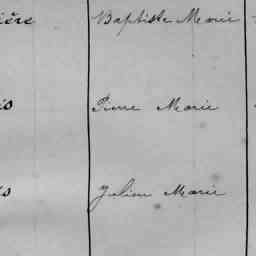 ière Baptiste Marie
is Pierre Marie
is Julien Marie